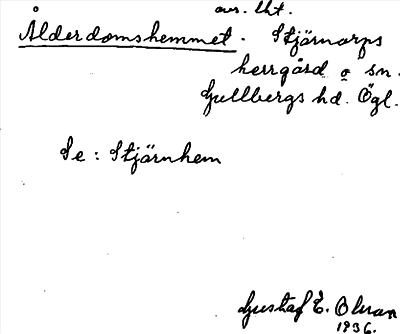 avs. lht.
Ålderdomshemmet. Stjärnorps
herrgård o sn.
Gullbergs hd. Ögl.
Se: Stjärnhem
Gustaf E. Olson
1936.